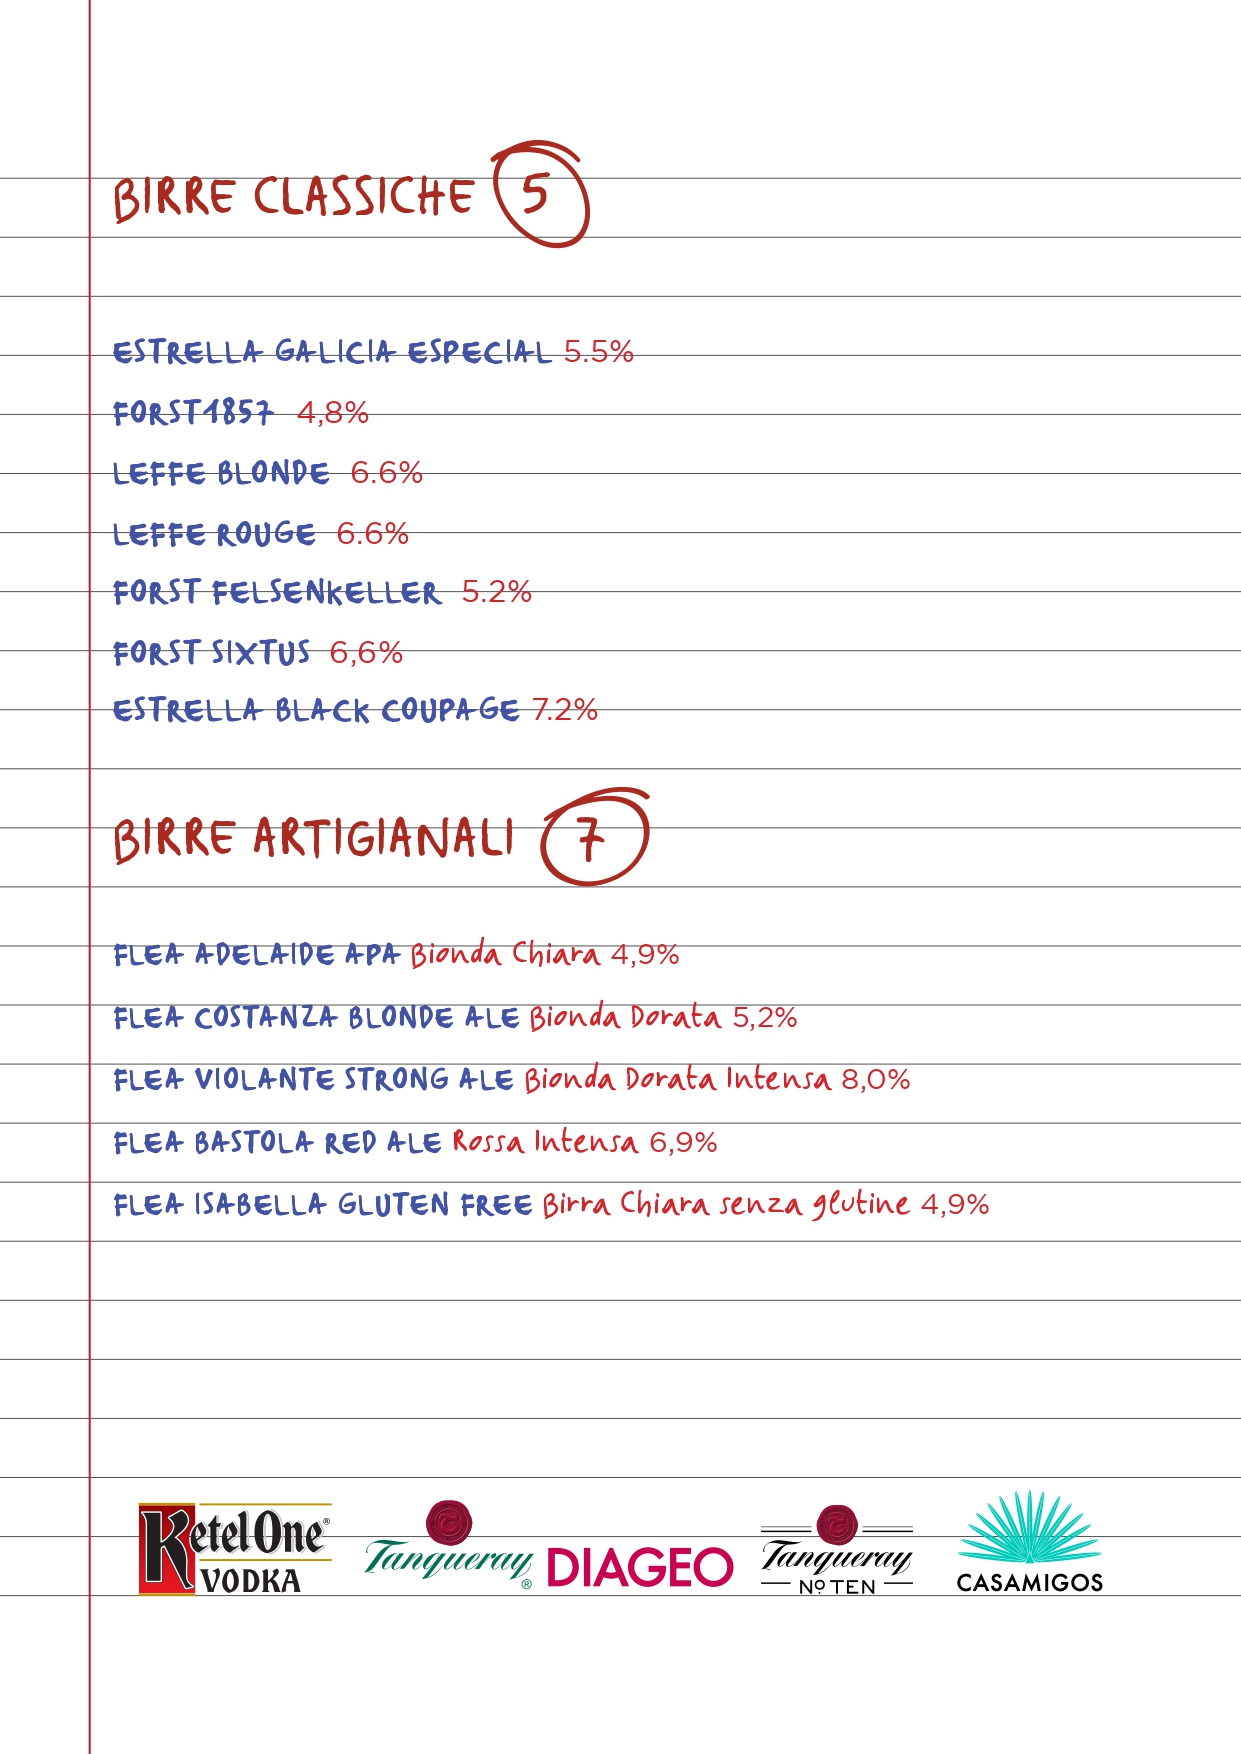 BIRRE CLASSICHE 5
ESTRELLA GALICIA ESPECIAL 5.5%
FORST1857 4,8%
LEFFE BLONDE 6.6%
LEFFE ROUGE 6.6%
FORST FELSENKELLER 5.2%
FORST SIXTUS 6,6%
ESTRELLA BLACK COUPAGE 7.2%
BIRRE ARTIGIANALI 7
FLEA ADELAIDE APA Bionda Chiara 4,9%
FLEA COSTANZA BLONDE ALE Bionda Dorata 5,2%
FLEA VIOLANTE STRONG ALE Bionda Dorata Intensa 8,0%
FLEA BASTOLA RED ALE Rossa Intensa 6,9%
FLEA ISABELLA GLUTEN FREE Birra Chiara senza glutine 4,9%
Ketel One®
VODKA
Tanqueray®
DIAGEO
Tanqueray
Nº TEN
CASAMIGOS